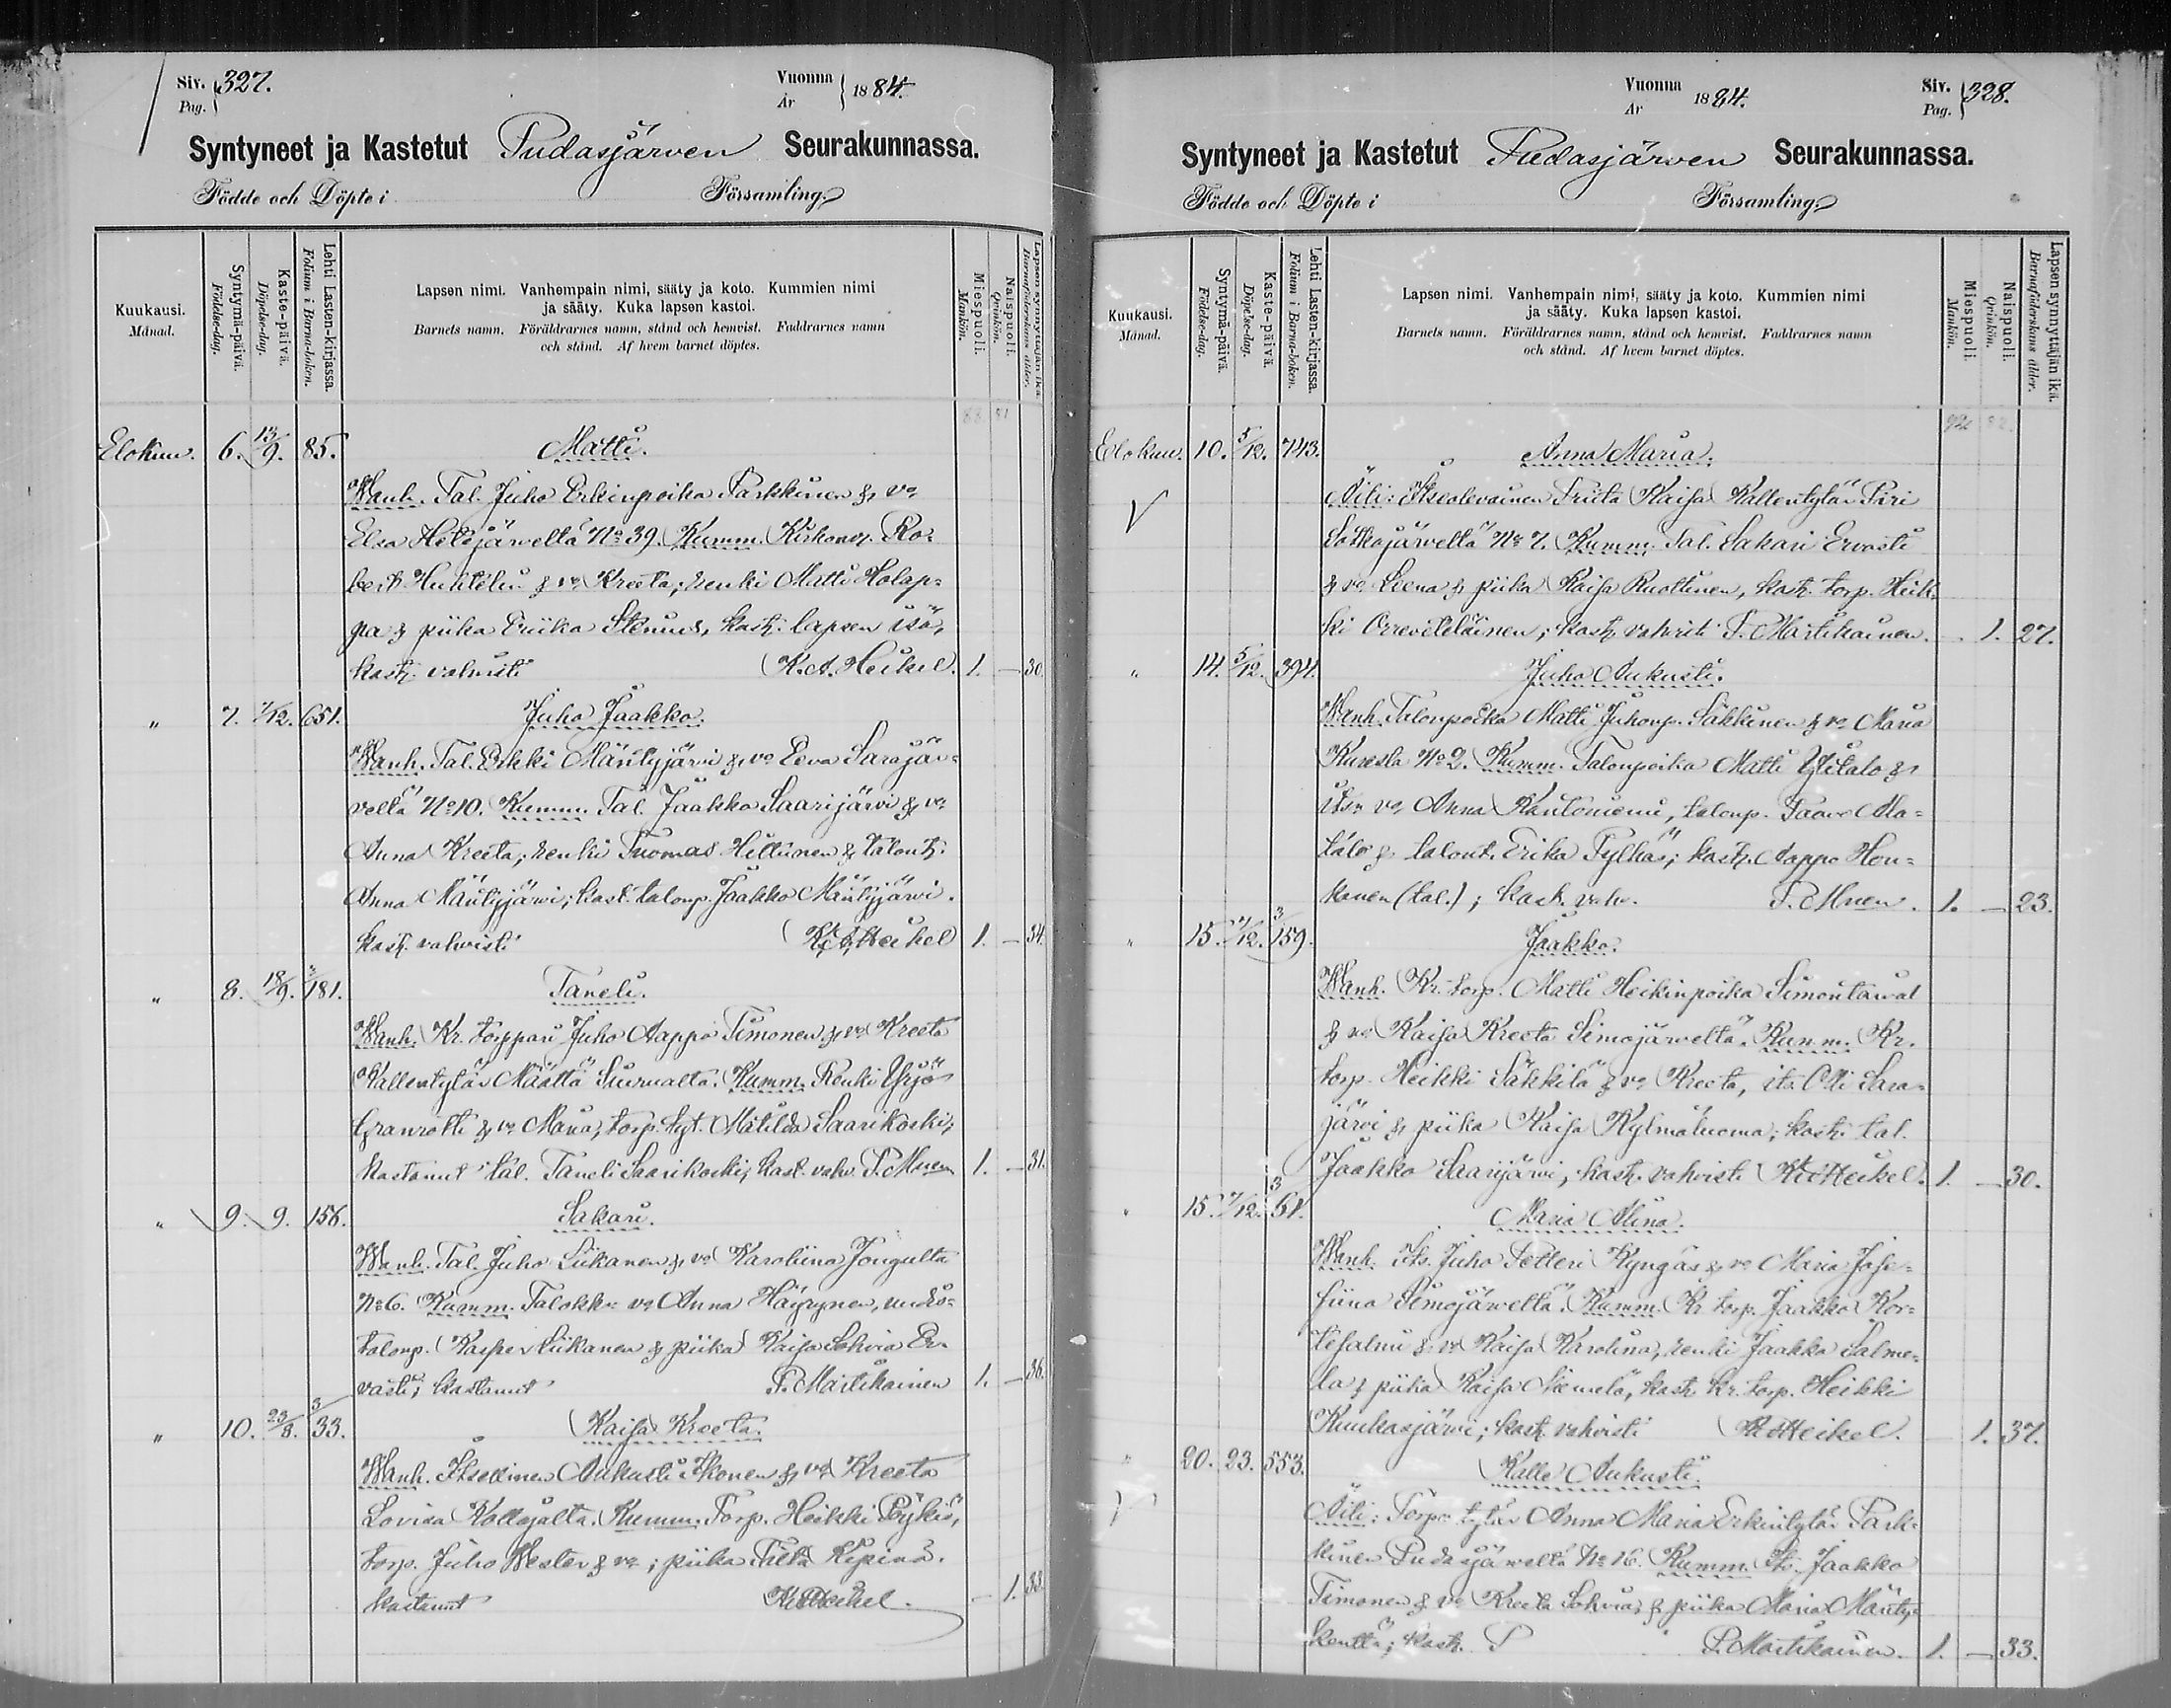 Siv. 327.
Pag.
Vuonna 1884.
År
Syntyneet ja Kastetut Pudasjärven Seurakunnassa.
Födde och Döpte i Församling.
Kuukausi. Månad.
Syntymä-päivä. Födelse-dag.
Kaste-päivä. Döpelse-dag.
Lehti Lasten-kirjassa. Folium i Barna-boken.
Lapsen nimi. Vanhempain nimi, sääty ja koto. Kummien nimi
ja sääty. Kuka lapsen kastoi.
Barnets namn. Föräldrarnes namn, stånd och hemvist. Faddrarnes namn
och stånd. Af hvem barnet döptes.
Miespuoli. Mankön.
Naispuoli. Qvinkön.
Lapsen synnyttäjän ikä. Barnaföderskans ålder.
88 81
Elokuu. 6. 13/9. 85. Matti.
Wanh. Tal. Juho Erkinpoika Parkkinen & vo
Elsa Hetejärveltä No 39. Kumm. Kirkonp. Ro-
bert Huhtelin & vo Kreeta; renki Matti Holap-
pa & piika Eriika Stenius, kast. lapsen isä,
kast. vahvisti K. A. Heikel. 1. — 30.
" 7. 7/12. 651. Juho Jaakko.
Wanh. Tal. Erkki Mäntyjärvi & vo Eeva Sarajär-
veltä No 10. Kumm. Tal. Jaakko Saarijärvi & vo
Anna Kreeta; renki Tuomas Hiltunen & talont.
Anna Mäntyjärvi; kast. talonp. Jaakko Mäntyjärvi.
kast. vahvisti K. A. Heikel 1. — 34.
" 8. 18/9. 3/181. Taneli.
Wanh. Kr. torppari Juho Aappo Timonen & vo Kreeta
Kallentytär Määttä Siurualta. Kumm. Renki Yrjö
Granrotti & vo Maria, torp. tyt. Matilda Saarikoski;
kastanut tal. Taneli Saarikoski; kast. vahv. P. Mnen 1. — 31.
" 9. 9. 156. Sakari.
Wanh. Tal. Juho Liikanen & vo Karoliina Jongulta
No 6. Kumm. Talokk. vo Anna Häyrynen,
talonp. Kasper Liikanen & piika Kaisa Sohvia Er-
vasti; kastanut P. Martikainen 1. — 36.
" 10. 23/8. 3/33. Kaisa Kreeta.
Wanh. Itsellinen Aukusti Ikonen & vo Kreeta
Lovisa Kollajalta. Kumm. Torp. Heikki Pöykiö,
torp. Juho Wester & vo; piika Tilta Kipinä.
kastanut K. A. Heikel. — 1. 33.
Vuonna 1884.
År
Siv. 328.
Pag.
Syntyneet ja Kastetut Pudasjärven Seurakunnassa.
Födde och Döpte i Församling.
Kuukausi. Månad.
Syntymä-päivä. Födelse-dag.
Kaste-päivä. Döpelse-dag.
Lehti Lasten-kirjassa. Folium i Barna-boken.
Lapsen nimi. Vanhempain nimi, sääty ja koto. Kummien nimi
ja sääty. Kuka lapsen kastoi.
Barnets namn. Föräldrarnes namn, stånd och hemvist. Faddrarnes namn
och stånd. Af hvem barnet döptes.
Miespuoli. Mankön.
Naispuoli. Qvinkön.
Lapsen synnyttäjän ikä. Barnaföderskans ålder.
92 82
Elokuu. 10. 5/12. 743. Anna Maria.
Äiti: Itseolevainen Priita Kaisa Kallentytär Piri
Sotkajärveltä No 7. Kumm. Tal. Sakari Ervasti
& vo Leena & piika Kaisa Ruottinen, kast. torp. Heik-
ki; kast. vahvisti P. Martikainen. — 1. 27.
" 14. 5/12. 394. Juho Aukusti.
Wanh. Talonpoika Matti Juhonp. Säkkinen & vo Maria
Kuresta No 2. Kumm. Talonpoika Matti Ylitalo &
its. vo Anna Kantoniemi, talonp. Paavo Ala-
talo & talont. Erika Pylkäs; kast. Aappo Hon-
kanen (tal.); kast. vahv. P. Mnen. 1. — 23.
" 15. 7/12. 3/159. Jaakko.
Wanh. Kr. torp. Matti Heikinpoika Simontaival
& vo Kaisa Kreeta Simojärveltä. Kumm. Kr.
torp. Heikki Säkkilä & vo Kreeta, its. Olli Sara-
järvi & piika Kaisa Kylmäluoma; kast. tal.
Jaakko Saarijärvi, kast. vahvisti K. A. Heikel. 1. — 30.
" 15. 7/12. 3/61. Maria Alina.
Wanh. Its. Juho Petteri Kyngäs & vo Maria Jose-
fiina Simojärveltä. Kumm. Kr. torp. Jaakko Kor-
tesalmi & vo Kaisa Karolina, renki Jaakko Salme-
la & piika Kaisa Niemelä, kast. kr. torp. Heikki
Kuukasjärvi; kast. vahvisti K. A. Heikel. — 1. 37.
" 20. 23. 553. Kalle Aukusti.
Äiti: Torp. tytär Anna Maria Erkintytär Park-
kinen Pudasjärveltä No 16. Kumm. Its. Jaakko
Timonen & vo Kreeta Sohvia, & piika Maria Mänty-
kenttä; kast. P P. Martikainen. 1. — 33.